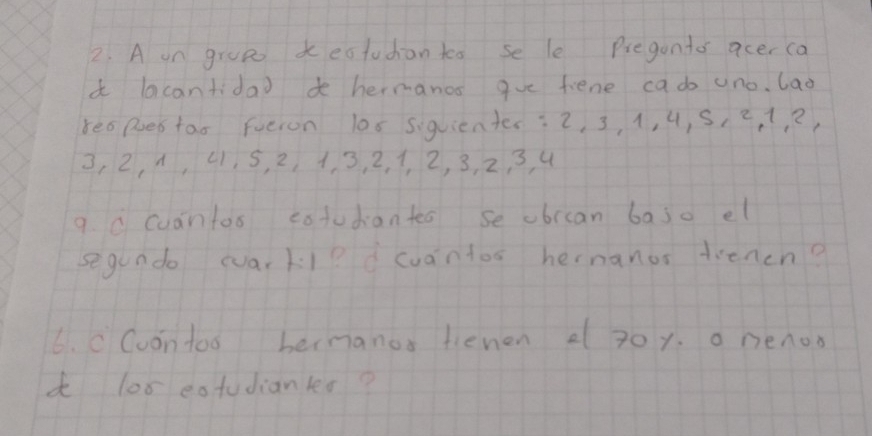 2. A un grupo de estudiantes se le Preguntó acerca
de lacantidad de hermanos que tiene cada uno. Las
respuestas fueron las siguientes: 2, 3, 1, 4, 5, 2, 1, 2,
3, 2, 1, 4, 5, 2, 1, 3, 2, 1, 2, 3, 2, 3, 4
a. ¿ cuántos estudiantes se ubican bajo el
segundo cuartil? ¿ cuántos hermanos tienen?
b. ¿ Cuántos hermanos tienen el 70%. o menos
de los estudiantes?